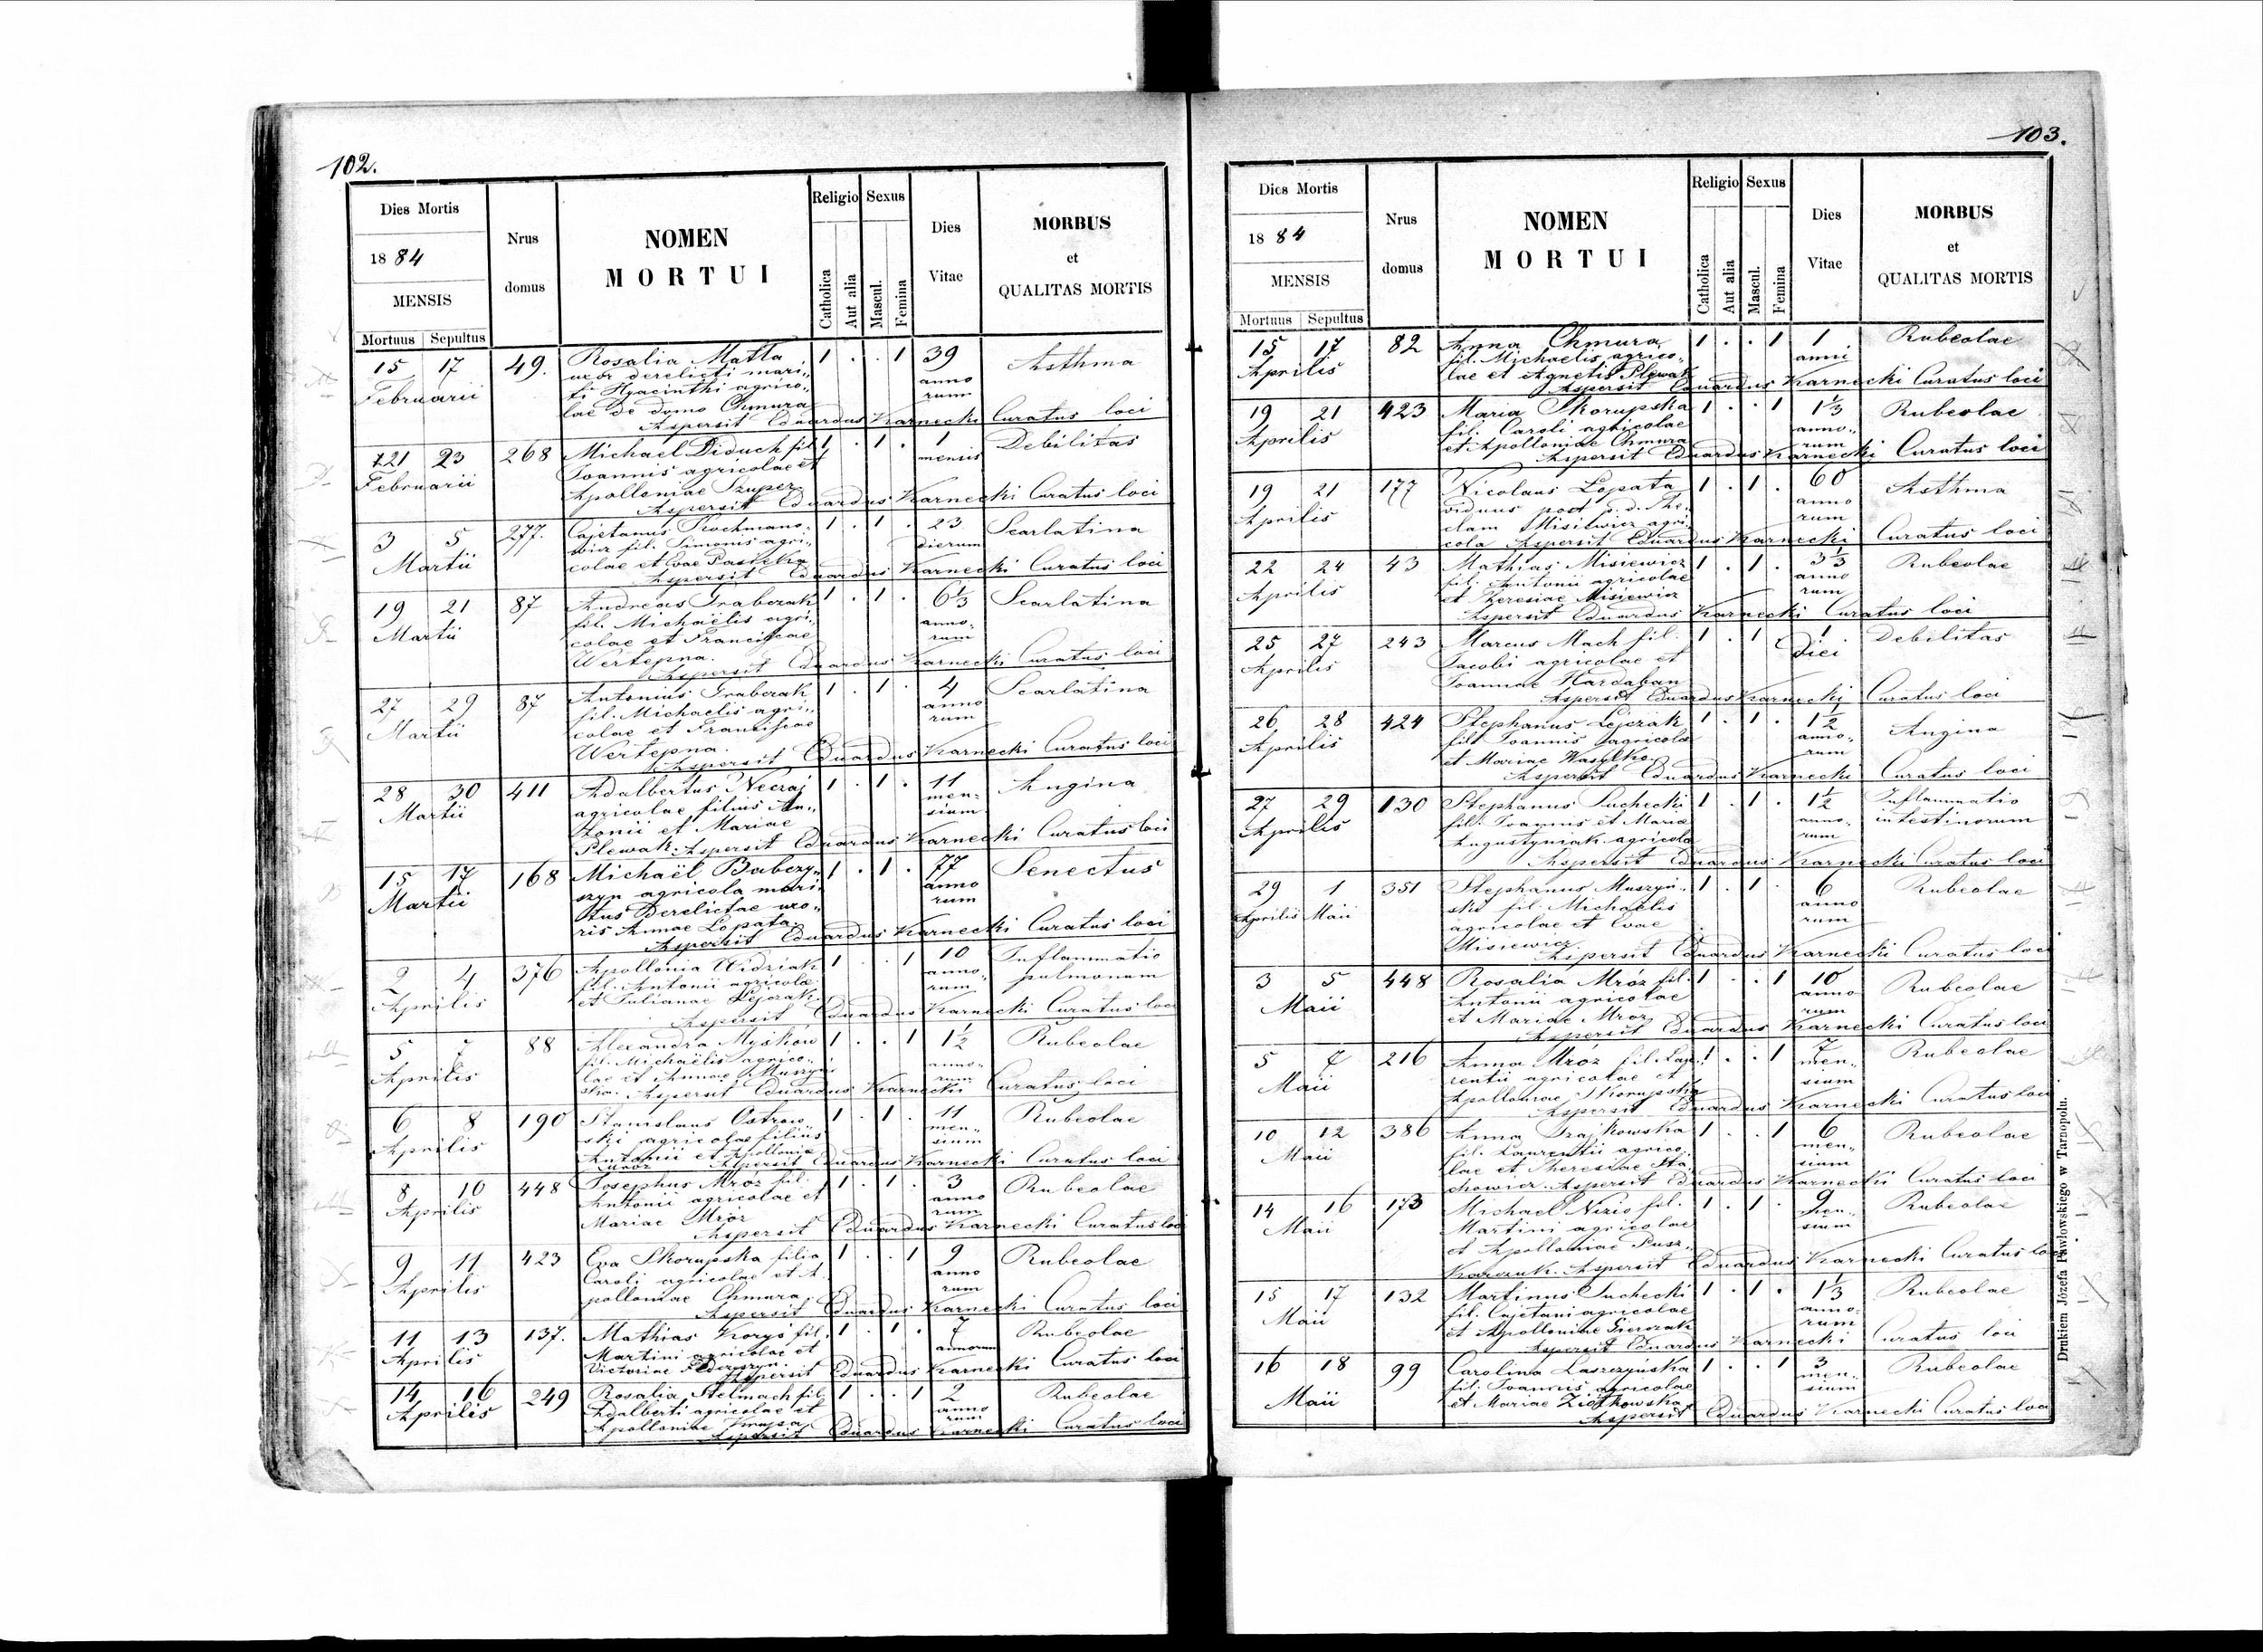 102.
Dies Mortis
Nrus
domus
NOMEN
MORTUI
Religio
Sexus
Dies
Vitae
MORBUS
et
QUALITAS MORTIS
1884
MENSIS
Mortuus Sepultus
Catholica
Aut alia
Mascul.
Femina
15 17 49. Rosalia Matla 1 . . 1 39 Asthma
Februarii uxor derelicti mari„ anno
ti Hyacinthi agrico„ rum
lae de domo Chmura
Aspersit Eduardus Karnecki Curatus loci
21 23 268 Michael Diduch fil. 1 . 1 . 1 Debilitas
Februarii Joannis agricolae et mensis
Apolloniae Szuper
Aspersit Eduardus Karnecki Curatus loci
3 5 277. Cajetanus Kochmano„ 1 . 1 . 23 Scarlatina
Martii wicz fil. Simonis agri„ dierum
colae et Evae
Aspersit Eduardus Karnecki Curatus loci
19 21 87 Andreas Grabczak 1 . 1 . 6 1/3 Scarlatina
Martii fil. Michaëlis agri„ anno„
colae et Franciscae rum
Wertepna.
Aspersit Eduardus Karnecki Curatus loci
27 29 87 Antonius Grabczak 1 . 1 . 4 Scarlatina
Martii fil. Michaelis agri„ anno
colae et Franciscae rum
Wertepna.
Aspersit Eduardus Karnecki Curatus loci
28 30 411 Adalbertus Neczaj 1 . 1 . 11 Angina
Martii agricolae filius An„ men„
tonii et Mariae sium
Plewak. Aspersit Eduardus Karnecki Curatus loci
15 17 168 Michaël Babczy„ 1 . 1 . 77 Senectus
Martii szyn agricola mari„ anno
tus derelictae uxo„ rum
ris Annae Lopata.
Aspersit Eduardus Karnecki Curatus loci
2 4 376 Apollonia Widziak 1 . . 1 10 Inflammatio
Aprilis fil. Antonii agricolae anno„ pulmonum
et Julianae Lejczak. rum
Aspersit Eduardus Karnecki Curatus loci
5 7 88 Alexandra Myśków 1 . . 1 1 1/2 Rubeolae
Aprilis fil. Michaëlis agrico„ anno„
lae et Annae Muszyń rum
ska. Aspersit Eduardus Karnecki Curatus loci
6 8 190 Stanislaus Ostrow„ 1 . 1 . 11 Rubeolae
Aprilis ski agricolae filius men„
Antonii et Apollonia sium
Mróz Aspersit Eduardus Karnecki Curatus loci
8 10 448 Josephus Mróz fil. 1 . 1 . 3 Rubeolae
Aprilis Antonii agricolae et anno
Mariae Mróz rum
Aspersit Eduardus Karnecki Curatus loci
9 11 423 Eva Skorupska filia 1 . . 1 9 Rubeolae
Aprilis Caroli agricolae et A„ anno
polloniae Chmura. rum
Aspersit Eduardus Karnecki Curatus loci
11 13 137. Mathias Koryś fil. 1 . 1 . 7 Rubeolae
Aprilis Martini agricolae et annorum
Victoriae Aspersit Eduardus Karnecki Curatus loci
14 16 249 Rosalia Stelmach fil. 1 . . 1 2 Rubeolae
Aprilis Adalberti agricolae et anno
Apolloniae rum
Aspersit Eduardus Karnecki Curatus loci
103.
Dies Mortis
Nrus
domus
NOMEN
MORTUI
Religio
Sexus
Dies
Vitae
MORBUS
et
QUALITAS MORTIS
1884
MENSIS
Mortuus Sepultus
Catholica
Aut alia
Mascul.
Femina
15 17 82 Anna Chmura 1 . . 1 1 Rubeolae
Aprilis fil. Michaelis agrico„ anni
lae et Agnetis Plewak
Aspersit Eduardus Karnecki Curatus loci
19 21 423 Maria Skorupska 1 . . 1 1 1/3 Rubeolae
Aprilis fil. Caroli agricolae anno„
et Apolloniae Chmura rum
Aspersit Eduardus Karnecki Curatus loci
19 21 177 Nicolaus Lopata 1 . 1 . 60 Asthma
Aprilis viduus post p. d. The„ anno
clam Misiewicz agri„ rum
cola Aspersit Eduardus Karnecki Curatus loci
22 24 43 Mathias Misiewicz 1 . 1 . 3 1/3 Rubeolae
Aprilis fil. Antonii agricolae anno
et Theresiae Misiewicz rum
Aspersit Eduardus Karnecki Curatus loci
25 27 243 Marcus Mach fil. 1 . 1 1 Debilitas
Aprilis Jacobi agricolae et Diei
Joannae Hardaban
Aspersit Eduardus Karnecki Curatus loci
26 28 424 Stephanus Lejczak 1 . 1 . 1 1/2 Angina
Aprilis fil. Joannis agricolae anno„
et Mariae Wasylko rum
Aspersit Eduardus Karnecki Curatus loci
27 29 130 Stephanus Suchecki 1 . 1 . 1 1/2 Inflammatio
Aprilis fil. Joannis et Maria anno„ intestinorum
Augustyniak agricola rum
Aspersit Eduardus Karnecki Curatus loci
29 1 351 Stephanus Muszyń„ 1 . 1 . 6 Rubeolae
Aprilis Maii ski fil. Michaelis anno
agricolae et Evae rum
Misiewicz.
Aspersit Eduardus Karnecki Curatus loci
3 5 448 Rosalia Mróz fil. 1 . . 1 10 Rubeolae
Maii Antonii agricolae anno
et Mariae Mróz rum
Aspersit Eduardus Karnecki Curatus loci
5 7 216 Anna Mróz fil. Lau„ 1 . . 1 7 Rubeolae
Maii rentii agricolae et men„
Apolloniae Skorupska sium
Aspersit Eduardus Karnecki Curatus loci
10 12 386 Anna Grajkowska 1 . . 1 6 Rubeolae
Maii fil. Laurentii agrico„ men„
lae et Theresiae Sta„ sium
chowicz. Aspersit Eduardus Karnecki Curatus loci
14 16 173 Michael Nizio fil. 1 . 1 . 9 Rubeolae
Maii Martini agricolae men„
et Apolloniae Pusz„ sium
karczuk. Aspersit Eduardus Karnecki Curatus loci
15 17 132 Martinus Suchecki 1 . 1 . 1 1/3 Rubeolae
Maii fil. Cajetani agricolae anno„
et Apolloniae Gierczak rum
Aspersit Eduardus Karnecki Curatus loci
16 18 99 Carolina Laszczyńska 1 . . 1 3 Rubeolae
Maii fil. Joannis agricolae men„
et Mariae Ziółkowska sium
Aspersit Eduardus Karnecki Curatus loci
Drukiem Józefa Pawłowskiego w Tarnopolu.